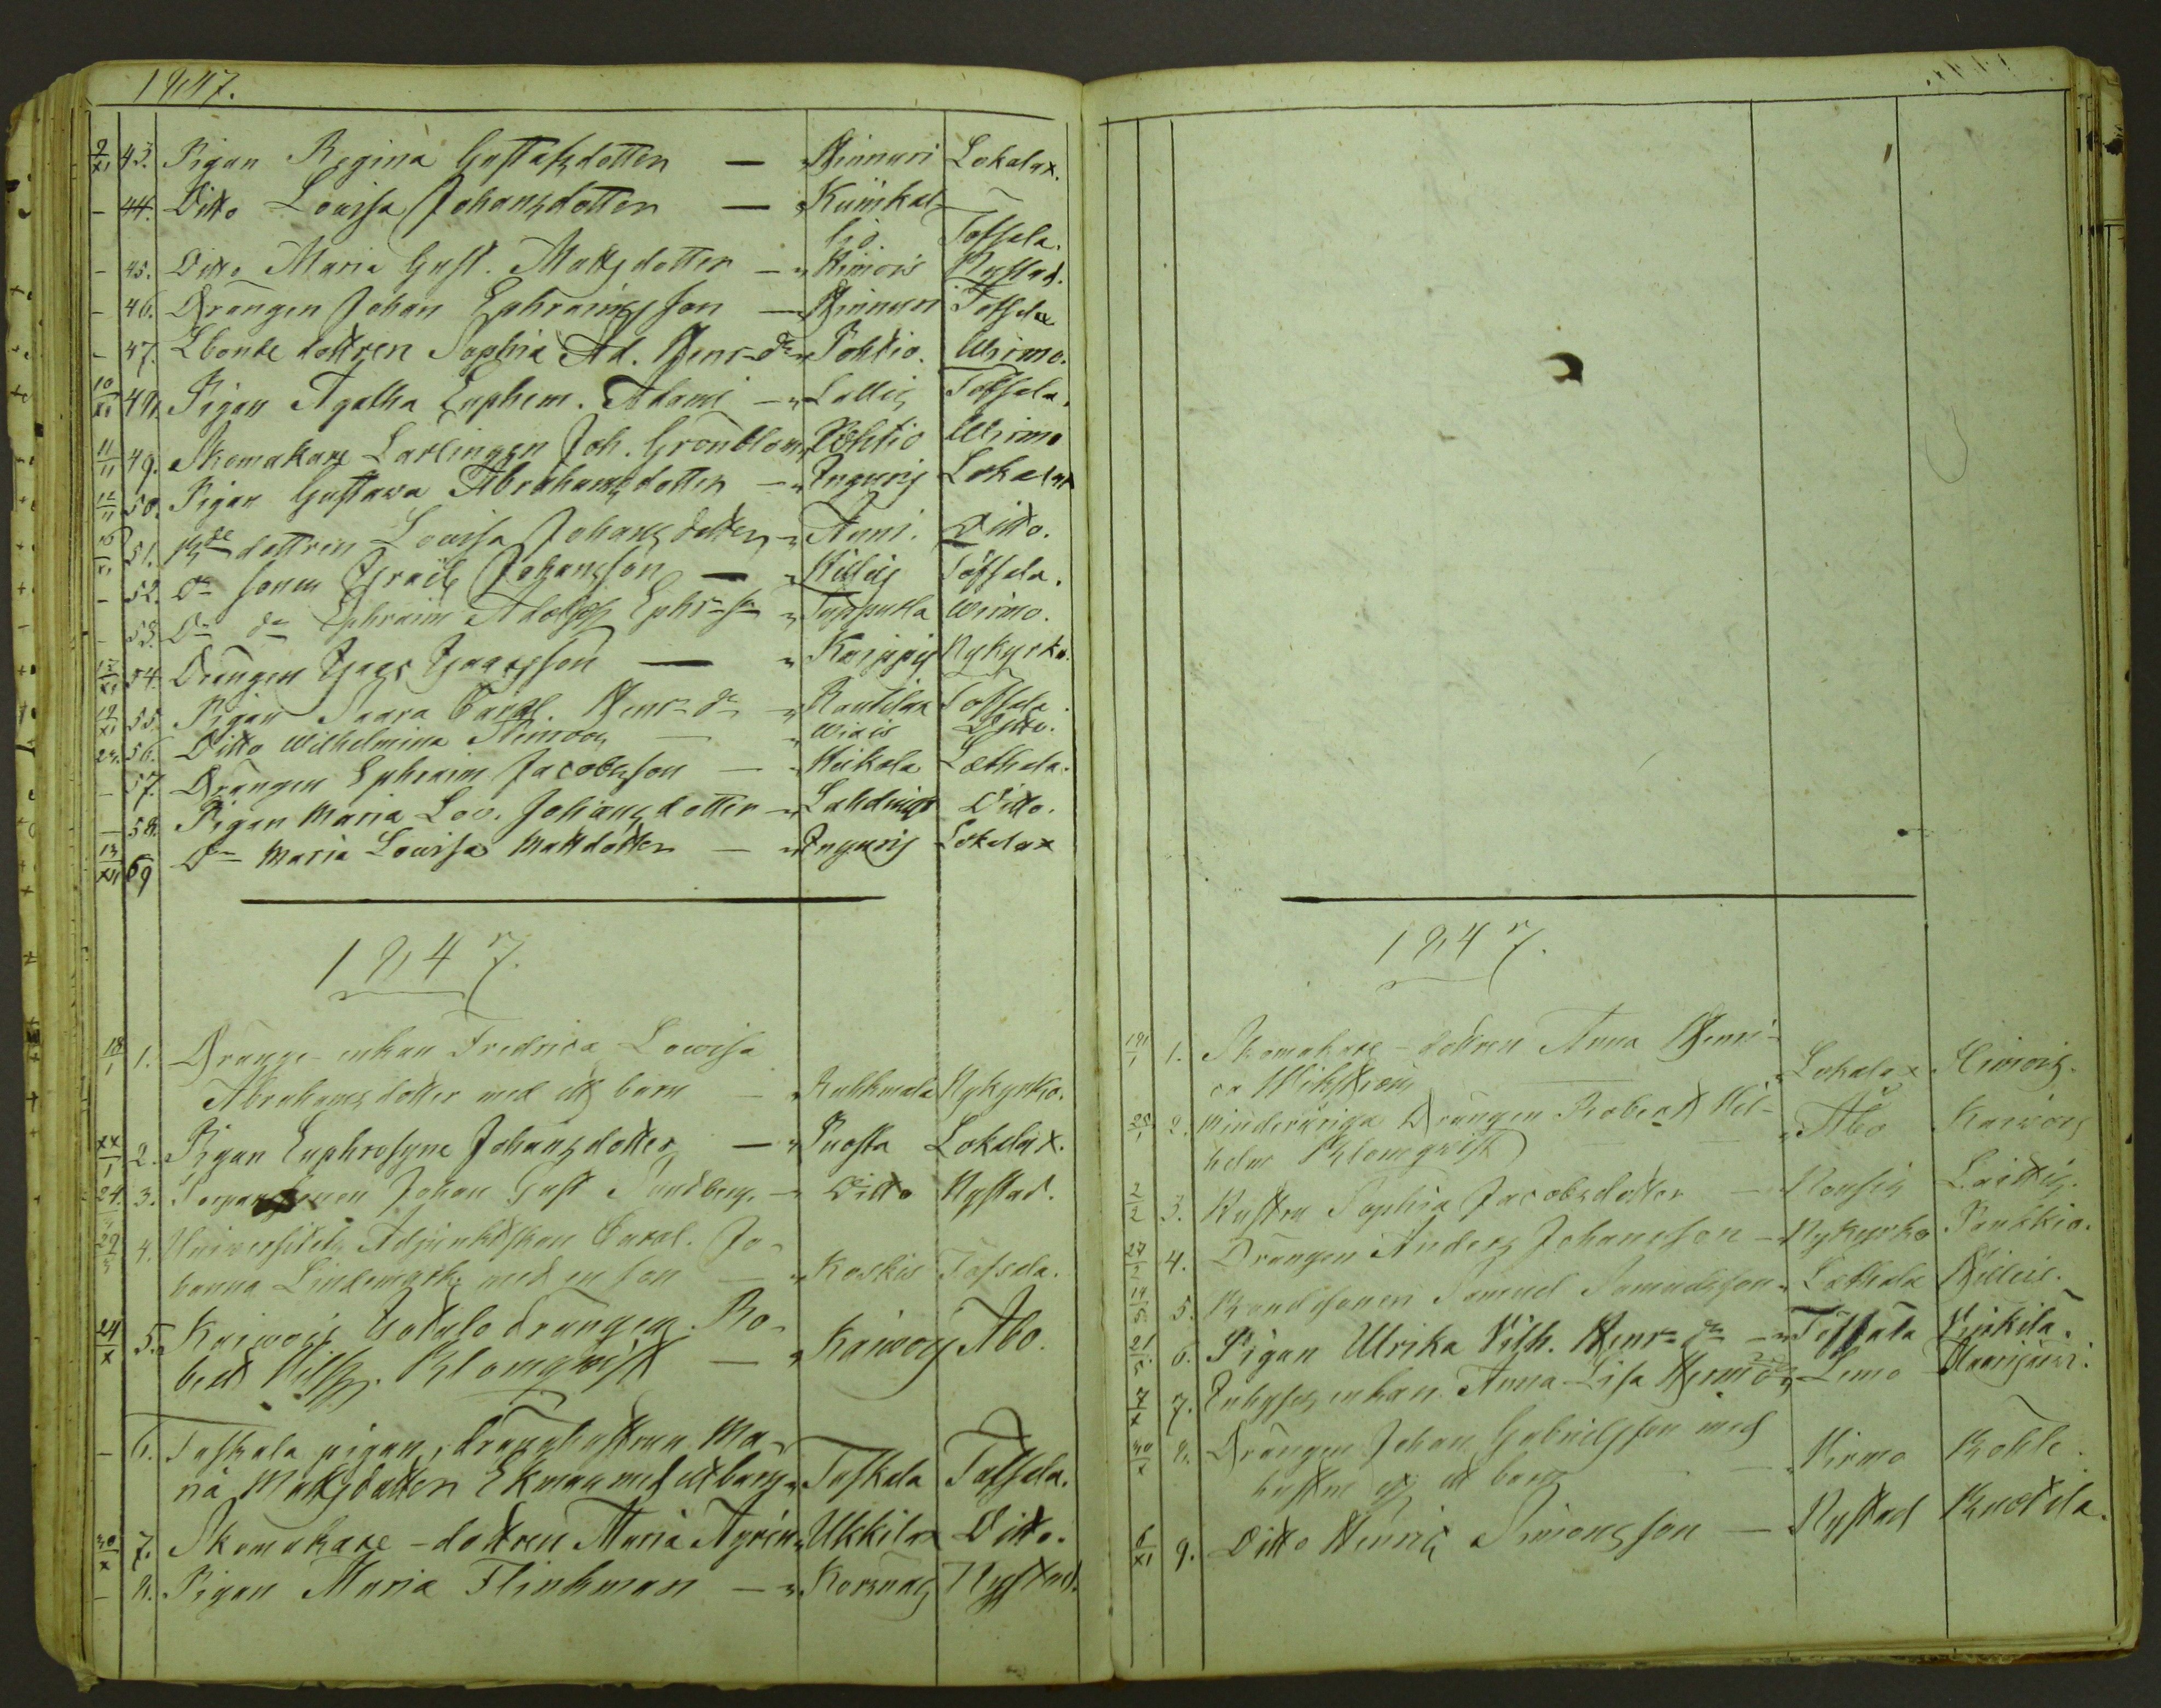 1847.
9/XI 43. Pigan Regina Gustafsdotter — Hinnuri Lokalax.
– 44. Ditto Lovisa Johansdotter — Kiimkal-
lio Töfsala.
– 45. Ditto Maria Gust. Mattsdotter — Himois Nystad.
– 46. Drängen Johan Ephraimsson — Hinnuri Töfsala
– 47. Ebonde dottren Sophia Ad. Henr-dr Pohtio. Wirmo.
10/XI 48. Pigan Agatha Euphem. Adami — Lallis Töfsala.
11/11 49. Skomakare Lärlingen Joh. Grönblom Pohtio Wirmo
12/11 50. Pigan Gustava Abrahamsdotter — Inguris Lokalax
15/XI 51. dottren Lovisa Johansdotter Anni. Ditto.
– 52. Do sonen Israël Johansson — Killais Töfsala.
– 53. Do do Ephraim Adolph Ephr-sn Wirmo.
54. Drängen Isaac Isaacsson — Karjpis Nykyrko.
19/XI 55. Pigan Saara Carol. Henr-dr Rautila Töfsala.
23. 56. Ditto Wilhelmina Simons — Wiais Ditto.
– 57. Drängen Ephraim Jacobsson — Heikola Lethala.
– 58. Pigan Maria Lov. Johansdotter Lahdingo Ditto.
13/XII 59 Do Maria Lovisa Mattsdotter — Inguris Lokalax
1847.
18/1 1. Drängs-enkan Fredrica Lovisa
Abrahamsdotter med ett barn — Ruhkmala Nykyrko.
XX/1 2. Pigan Euphrosyne Johansdotter — Puosta Lokalax.
24. 3. Johan Gust Sundberg. Ditto Nystad.
29 4. Universitets Adjunktskan Carol. Jo-
hanna med en son — Koskis Töfsala.
24/X 5. Kaiwois drängen Ro-
bert Wilh. Blomqvist — Kaiwois Åbo.
– 6. Taskala pigan, dränghustrun Ma-
ria Mattsdotter Ekman med ett barn Taskala Töfsala.
30/X 7. Skomakare-dottren Maria Ukkila Ditto.
– 8. Pigan Maria Flinkman — Korsnäs Nystad.
1847.
19/1 1. Skomakare-dottren Anna Henri-
ca Wikström — Lokalax Himois.
25/1 2. Minderåriga Drängen Robert Wil-
helm Blomqvist — Åbo Kaiwois
2/2 3. Hustru Sophia Jacobsdotter — Nousis Laittis.
27/2 4. Drängen Anders Johansson — Nykyrko Pankkio.
14/5 5. Bondsonen Samuel Samuelsson Lethala Killais.
21/5 6. Pigan Ulrika Wilh. Henr-dr — Töfsala
7/X 7. Inhyses enkan Anna Lisa Lemo
30/X 8. Drängen Johan Gabrielsson med
hustru och ett barn — Wirmo Kohle.
6/XI 9. Ditto Henric Simonsson — Nystad